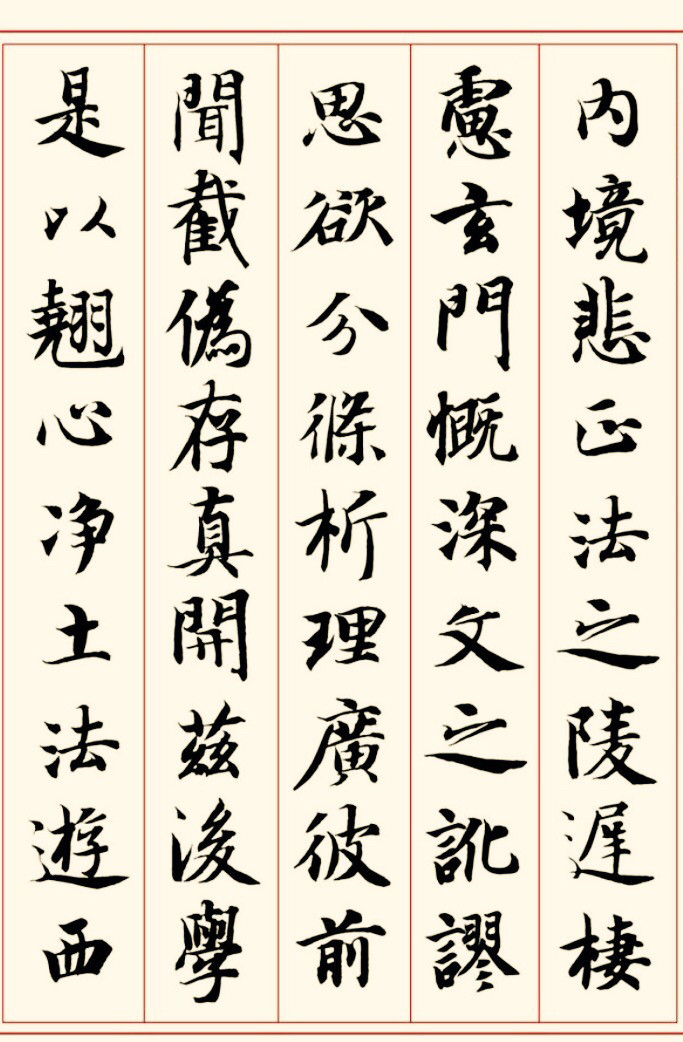 内境悲正法之陵遲棲
慮玄門慨深文之訛謬
思欲分條析理廣彼前
聞截偽存真開茲後學
是以翹心净土法遊西